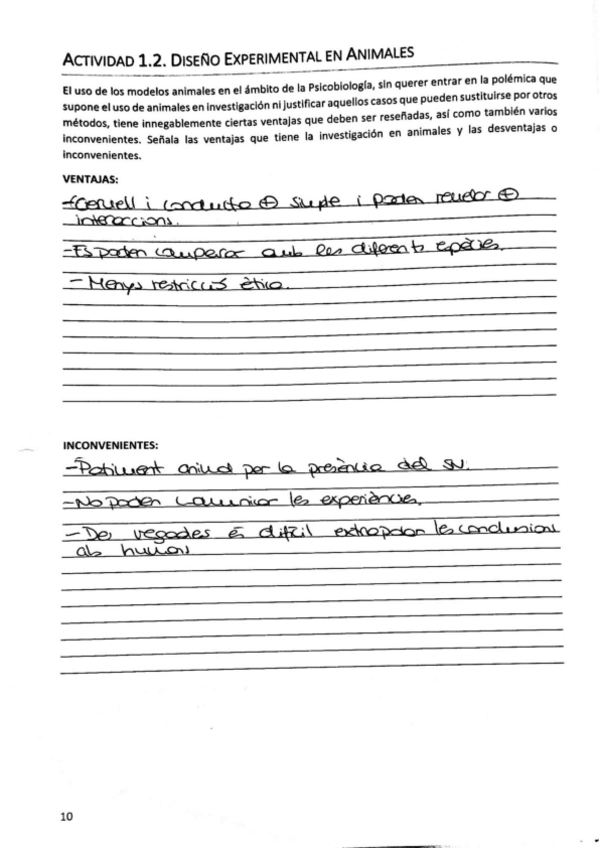 ACTIVIDAD 1.2. DISEÑO EXPERIMENTAL EN ANIMALES
El uso de los modelos animales en el ámbito de la Psicobiología, sin querer entrar en la polémica que
supone el uso de animales en investigación ni justificar aquellos casos que pueden sustituirse por otros
métodos, tiene innegablemente ciertas ventajas que deben ser reseñadas, así como también varios
inconvenientes. Señala las ventajas que tiene la investigación en animales y las desventajas o
inconvenientes.
VENTAJAS:
-Cervell i conducta ⊕ simple i poden revelar ⊕
interaccions.
-Es poden comparar amb les diferents espècies.
- Menys restriccions ètica.
INCONVENIENTES:
-Patiment animal per la presència del SN.
-No poden comunicar les experiències.
-De vegades és difícil extrapolar les conclusions
als humans
10